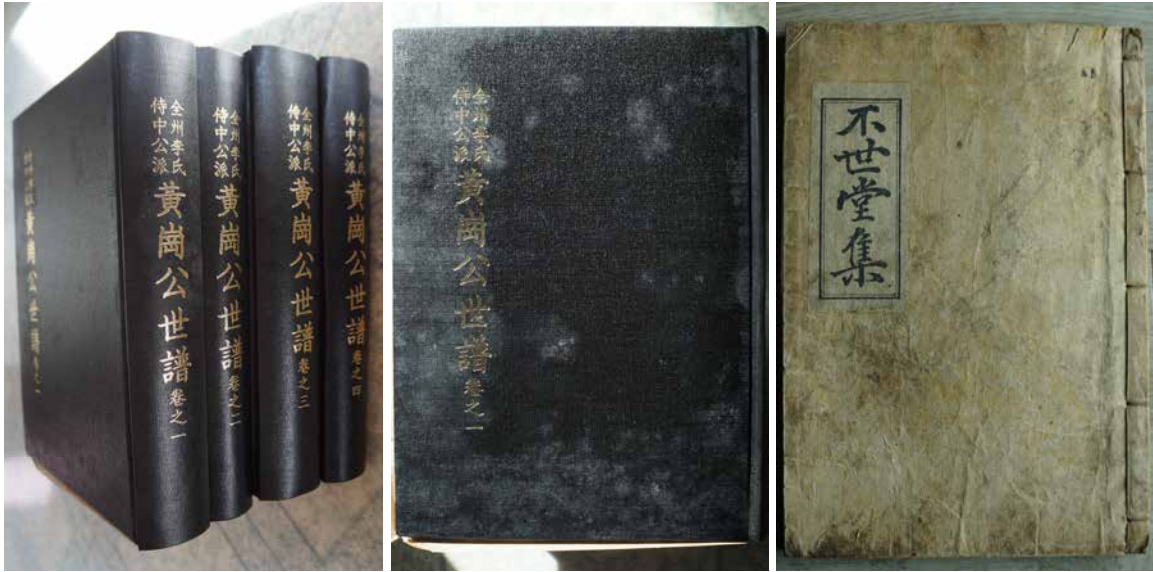 黃崗公世譜
全州李氏
侍中公派
黃崗公世譜 卷之一
全州李氏
侍中公派
黃崗公世譜 卷之二
全州李氏
侍中公派
黃崗公世譜 卷之三
全州李氏
侍中公派
黃崗公世譜 卷之四
全州李氏
侍中公派
黃崗公世譜 卷之一
不世堂集